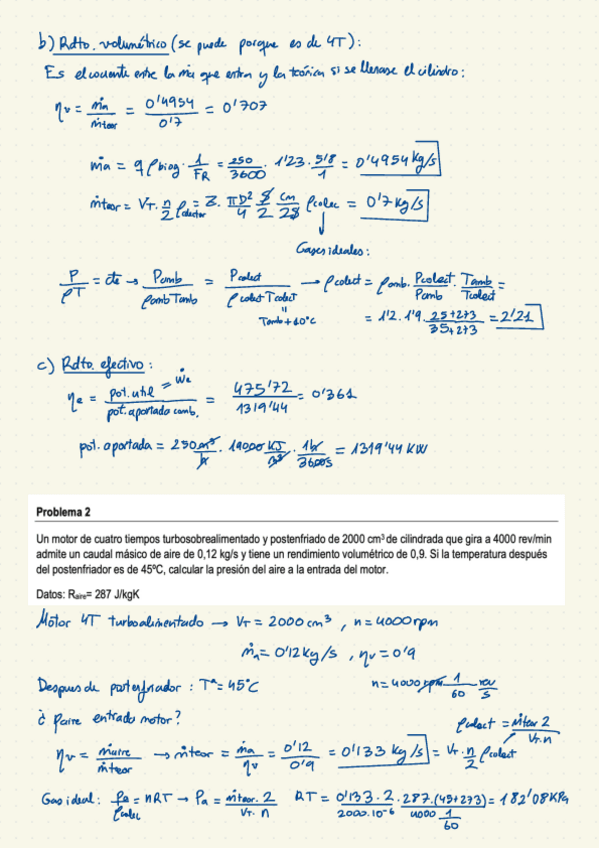 b) Rdto. volumétrico (se puede porque es de 4T):
Es el cociente entre la ma que entra y la teórica si se llenase el cilindro:
ηv = ṁa / ṁteor = 0'4954 / 0'7 = 0'707
ṁa = q ρbiog · 1/FR = 250/3600 · 1'23 · 5'8/1 = 0'4954 kg/s
ṁteor = VT · n/2 ρcolector = Z · πD²/4 S/2 cm/2S ρcolec = 0'7 kg/s
Gases ideales:
P/ρT = cte → Pamb / ρamb Tamb = Pcolect / ρcolect Tcolect → ρcolect = ρamb · Pcolect/Pamb · Tamb/Tcolect =
Tamb + 10°C
= 1'2 · 1'9 · 25+273 / 35+273 = 2'21
c) Rdto. efectivo:
ηe = pot. util = Ẇe / pot. aportado comb. = 475'72 / 1319'44 = 0'361
pot. aportada = 250 m³/h · 19000 KJ/m³ · 1h/3600s = 1319'44 KW
Problema 2
Un motor de cuatro tiempos turbosobrealimentado y postenfriado de 2000 cm³ de cilindrada que gira a 4000 rev/min
admite un caudal másico de aire de 0,12 kg/s y tiene un rendimiento volumétrico de 0,9. Si la temperatura después
del postenfriador es de 45ºC, calcular la presión del aire a la entrada del motor.
Datos: Raire= 287 J/kgK
Motor 4T turboalimentado → VT = 2000 cm³, n = 4000 rpm
ṁa = 0'12 kg/s, ηv = 0'9
Despues de postenfriador: Tª = 45°C
n = 4000 rpm 1/60 rev/s
¿ Paire entrada motor?
ρcolect = ṁteor 2 / VT · n
ηv = ṁaire / ṁteor → ṁteor = ṁa / ηv = 0'12 / 0'9 = 0'133 kg/s = VT · n/2 ρcolect
Gas ideal: Pa/ρcolec = nRT → Pa = ṁteor · 2 / VT · n RT = 0'133 · 2 / 2000·10⁻⁶ · 287 · (45+273) / 4000 1/60 = 182'08 KPa